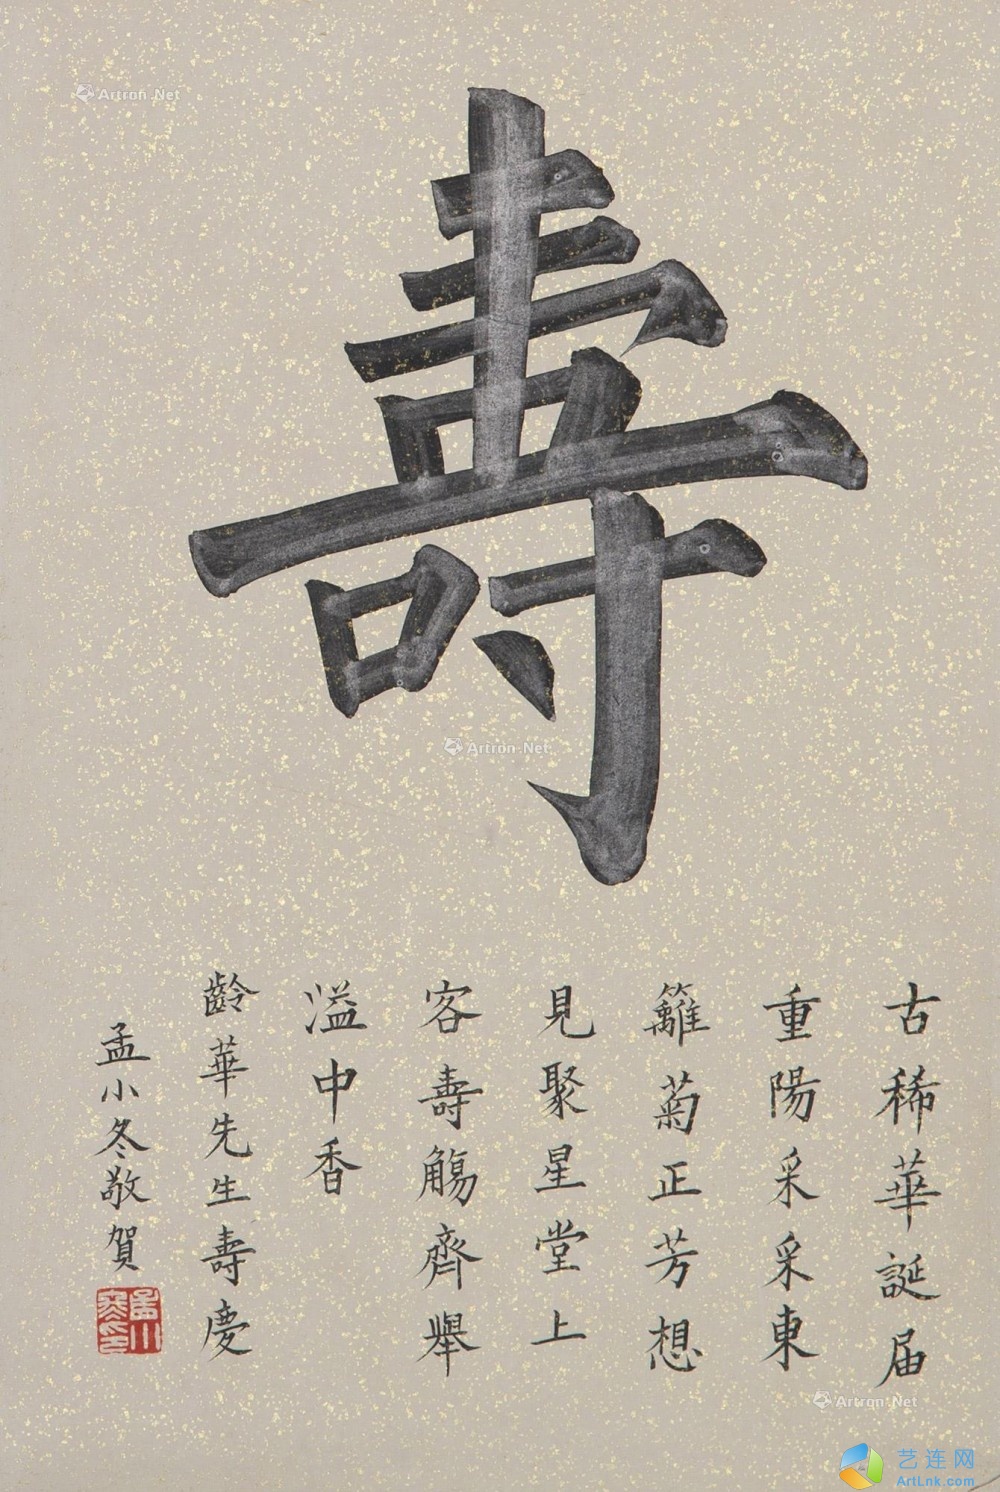 壽
古稀華誕届
重陽采采東
籬菊正芳想
見聚星堂上
客壽觴齊舉
溢中香
齡華先生壽慶
孟小冬敬賀
孟小冬印
Artron.Net
Artron.Net
Artron.Net
艺连网
ArtLnk.com